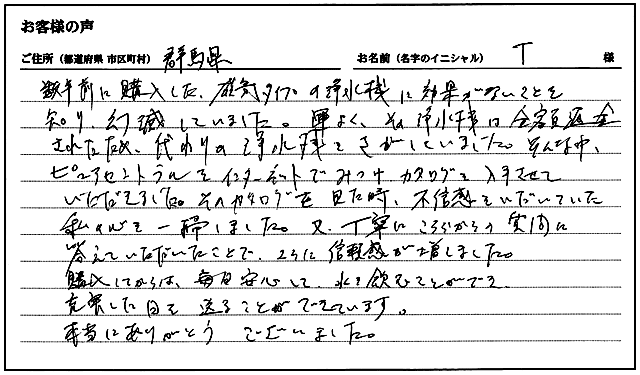 お客様の声
ご住所（都道府県 市区町村） 群馬県 お名前（名字のイニシャル） T 様
数年前に購入した、磁気タイプの浄水機に効果がないことを
知り、幻滅していました。運よく、その浄水機は全額返金
されたため、代わりの浄水機をさがしていました。そんな中、
ピュアセントラルをインターネットでみつけカタログを入手させて
いただきました。そのカタログを見た時、不信感をいだいていた
私の心を一掃しました。又、丁寧にこちらからの質問に
答えていただいたことで、さらに信頼感が増しました。
購入してからは、毎日安心して、水を飲むことができ、
充実した日を送ることができています。
本当にありがとうございました。